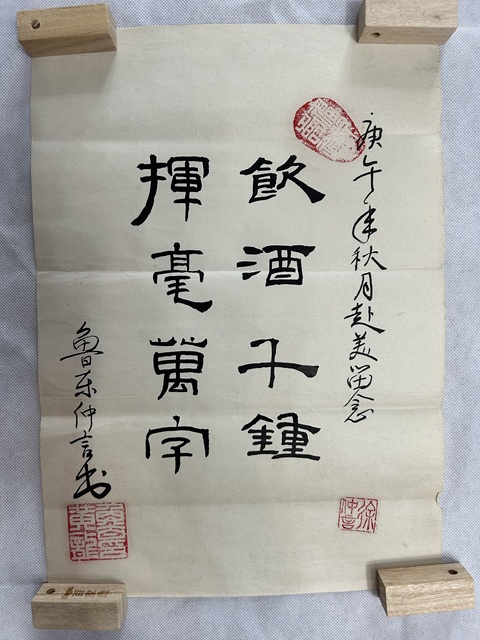 庚午年秋月赴美留念
飲酒千鍾
揮毫萬字
魯東仲言書
徐仲言